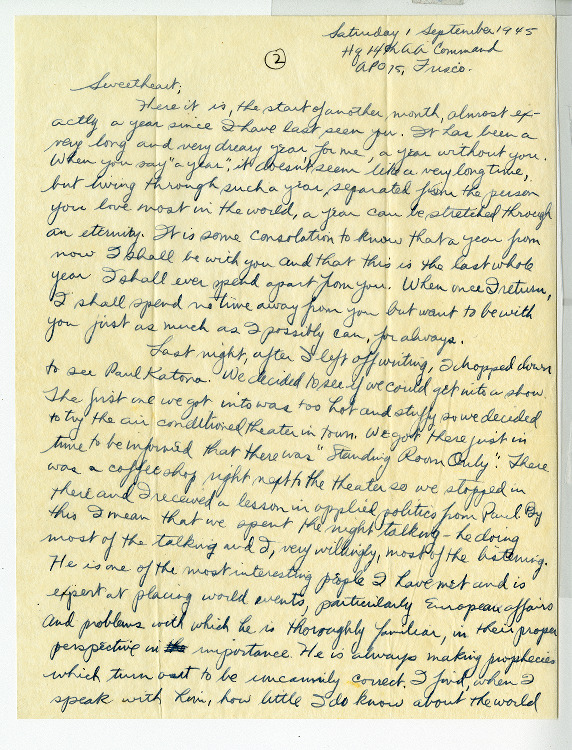 Saturday 1 September 1945
Hq 14th AA Command
APO 75, Frisco.
2
Sweetheart,
Here it is, the start of another month, almost ex-
actly a year since I have last seen you. It has been a
very long and very dreary year for me, a year without you.
When you say "a year", it doesn't seem like a very long time,
but living through such a year, separated from the person
you love most in the world, a year can be stretched through
an eternity. It is some consolation to know that a year from
now I shall be with you and that this is the last whole
year I shall ever spend apart from you. When once I return,
I shall spend no time away from you but want to be with
you just as much as I possibly can, for always.
Last night, after I left off writing, I hopped down
to see Paul Katona. We decided to see if we could get into a show.
The first one we got into was too hot and stuffy so we decided
to try the air conditioned theater in town. We got there just in
time to be informed that there was "Standing Room Only". There
was a coffee shop right next to the theater so we stopped in
there and I received a lesson in applied politics from Paul. By
this I mean that we spent the night talking - he doing
most of the talking and I, very willingly, most of the listening.
He is one of the most interesting people I have met and is
expert at placing world events, particularly European affairs
and problems with which he is thoroughly familiar, in their proper
perspective in importance. He is always making prophecies
which turn out to be uncannily correct. I find, when I
speak with him, how little I do know about the world